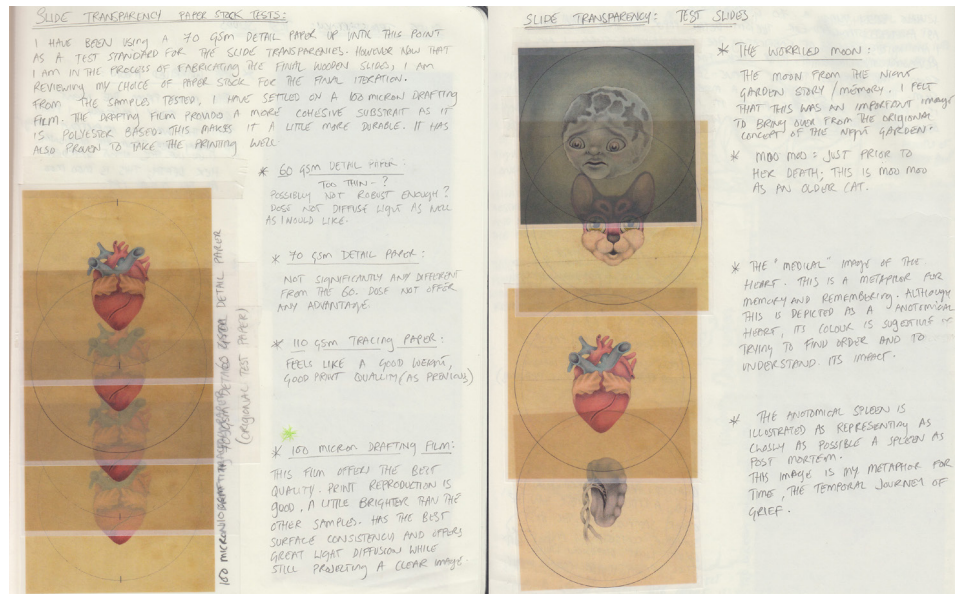 SLIDE TRANSPARENCY PAPER STOCK TESTS:
I HAVE BEEN USING A 70 GSM DETAIL PAPER UP UNTIL THIS POINT
AS A TEST STANDARD FOR THE SLIDE TRANSPARENIES. HOWEVER NOW THAT
I AM IN THE PROCESS OF FABRICATING THE FINAL WOODEN SLIDES, I AM
REVIEWING MY CHOICE OF PAPER STOCK FOR THE FINAL ITERATION.
FROM THE SAMPLES TESTED, I HAVE SETTLED ON A 100 MICRON DRAFTING
FILM. THE DRAFTING FILM PROVIDED A MORE COHESIVE SUBSTRAIT AS IT
IS POLYESTER BASED. THIS MAKES IT A LITTLE MORE DURABLE. IT HAS
ALSO PROVEN TO TAKE THE PRINTING WELL
* 60 GSM DETAIL PAPER:
TOO THIN-?
POSSIBLY NOT ROBUST ENOUGH?
DOSE NOT DIFFUSE LIGHT AS WELL
AS I WOULD LIKE.
* 70 GSM DETAIL PAPER:
NOT SIGNIFICANTLY ANY DIFFERENT
FROM THE 60. DOSE NOT OFFER
ANY ADVANTAGE.
* 110 GSM TRACING PAPER:
FEELS LIKE A GOOD WEIGHT,
GOOD PRINT QUALLITY (AS PREVIOUS)
* 100 MICRON DRAFTING FILM:
THIS FILM OFFERS THE BEST
QUALITY. PRINT REPRODUCTION IS
GOOD. A LITTLE BRIGHTER THAN THE
OTHER SAMPLES. HAS THE BEST
SURFACE CONSISTENCY AND OFFERS
GREAT LIGHT DIFFUSION WHILE
STILL PROJECTING A CLEAR IMAGE.
100 MICRON DETAIL PAPER
(ORIGIONAL TEST PAPER)
SLIDE TRANSPARENCY: TEST SLIDES
* THE WORRIED MOON:
THE MOON FROM THE NIGHT
GARDEN STORY/MEMORY. I FELT
THAT THIS WAS AN IMPORTANT IMAGE
TO BRING OVER FROM THE ORIGIONAL
CONCEPT OF THE NIGHT GARDEN.
* MOO MOO: JUST PRIOR TO
HER DEATH; THIS IS MOO MOO
AS AN OLDER CAT.
* THE "MEDICAL" IMAGE OF THE
HEART. THIS IS A METAPHOR FOR
MEMORY AND REMEMBERING. ALTHOUGH
THIS IS DEPICTED AS A ANATOMICAL
HEART, ITS COLOUR IS SUGESTIVE OF
TRYING TO FIND ORDER AND TO
UNDERSTAND. ITS IMPACT.
* THE ANOTOMICAL SPLEEN IS
ILLUSTRATED AS REPRESENTING AS
CLOSLY AS POSSIBLE A SPLEEN AS
POST MORTEM.
THIS IMAGE IS MY METAPHOR FOR
TIME, THE TEMPORAL JOURNEY OF
GRIEF.